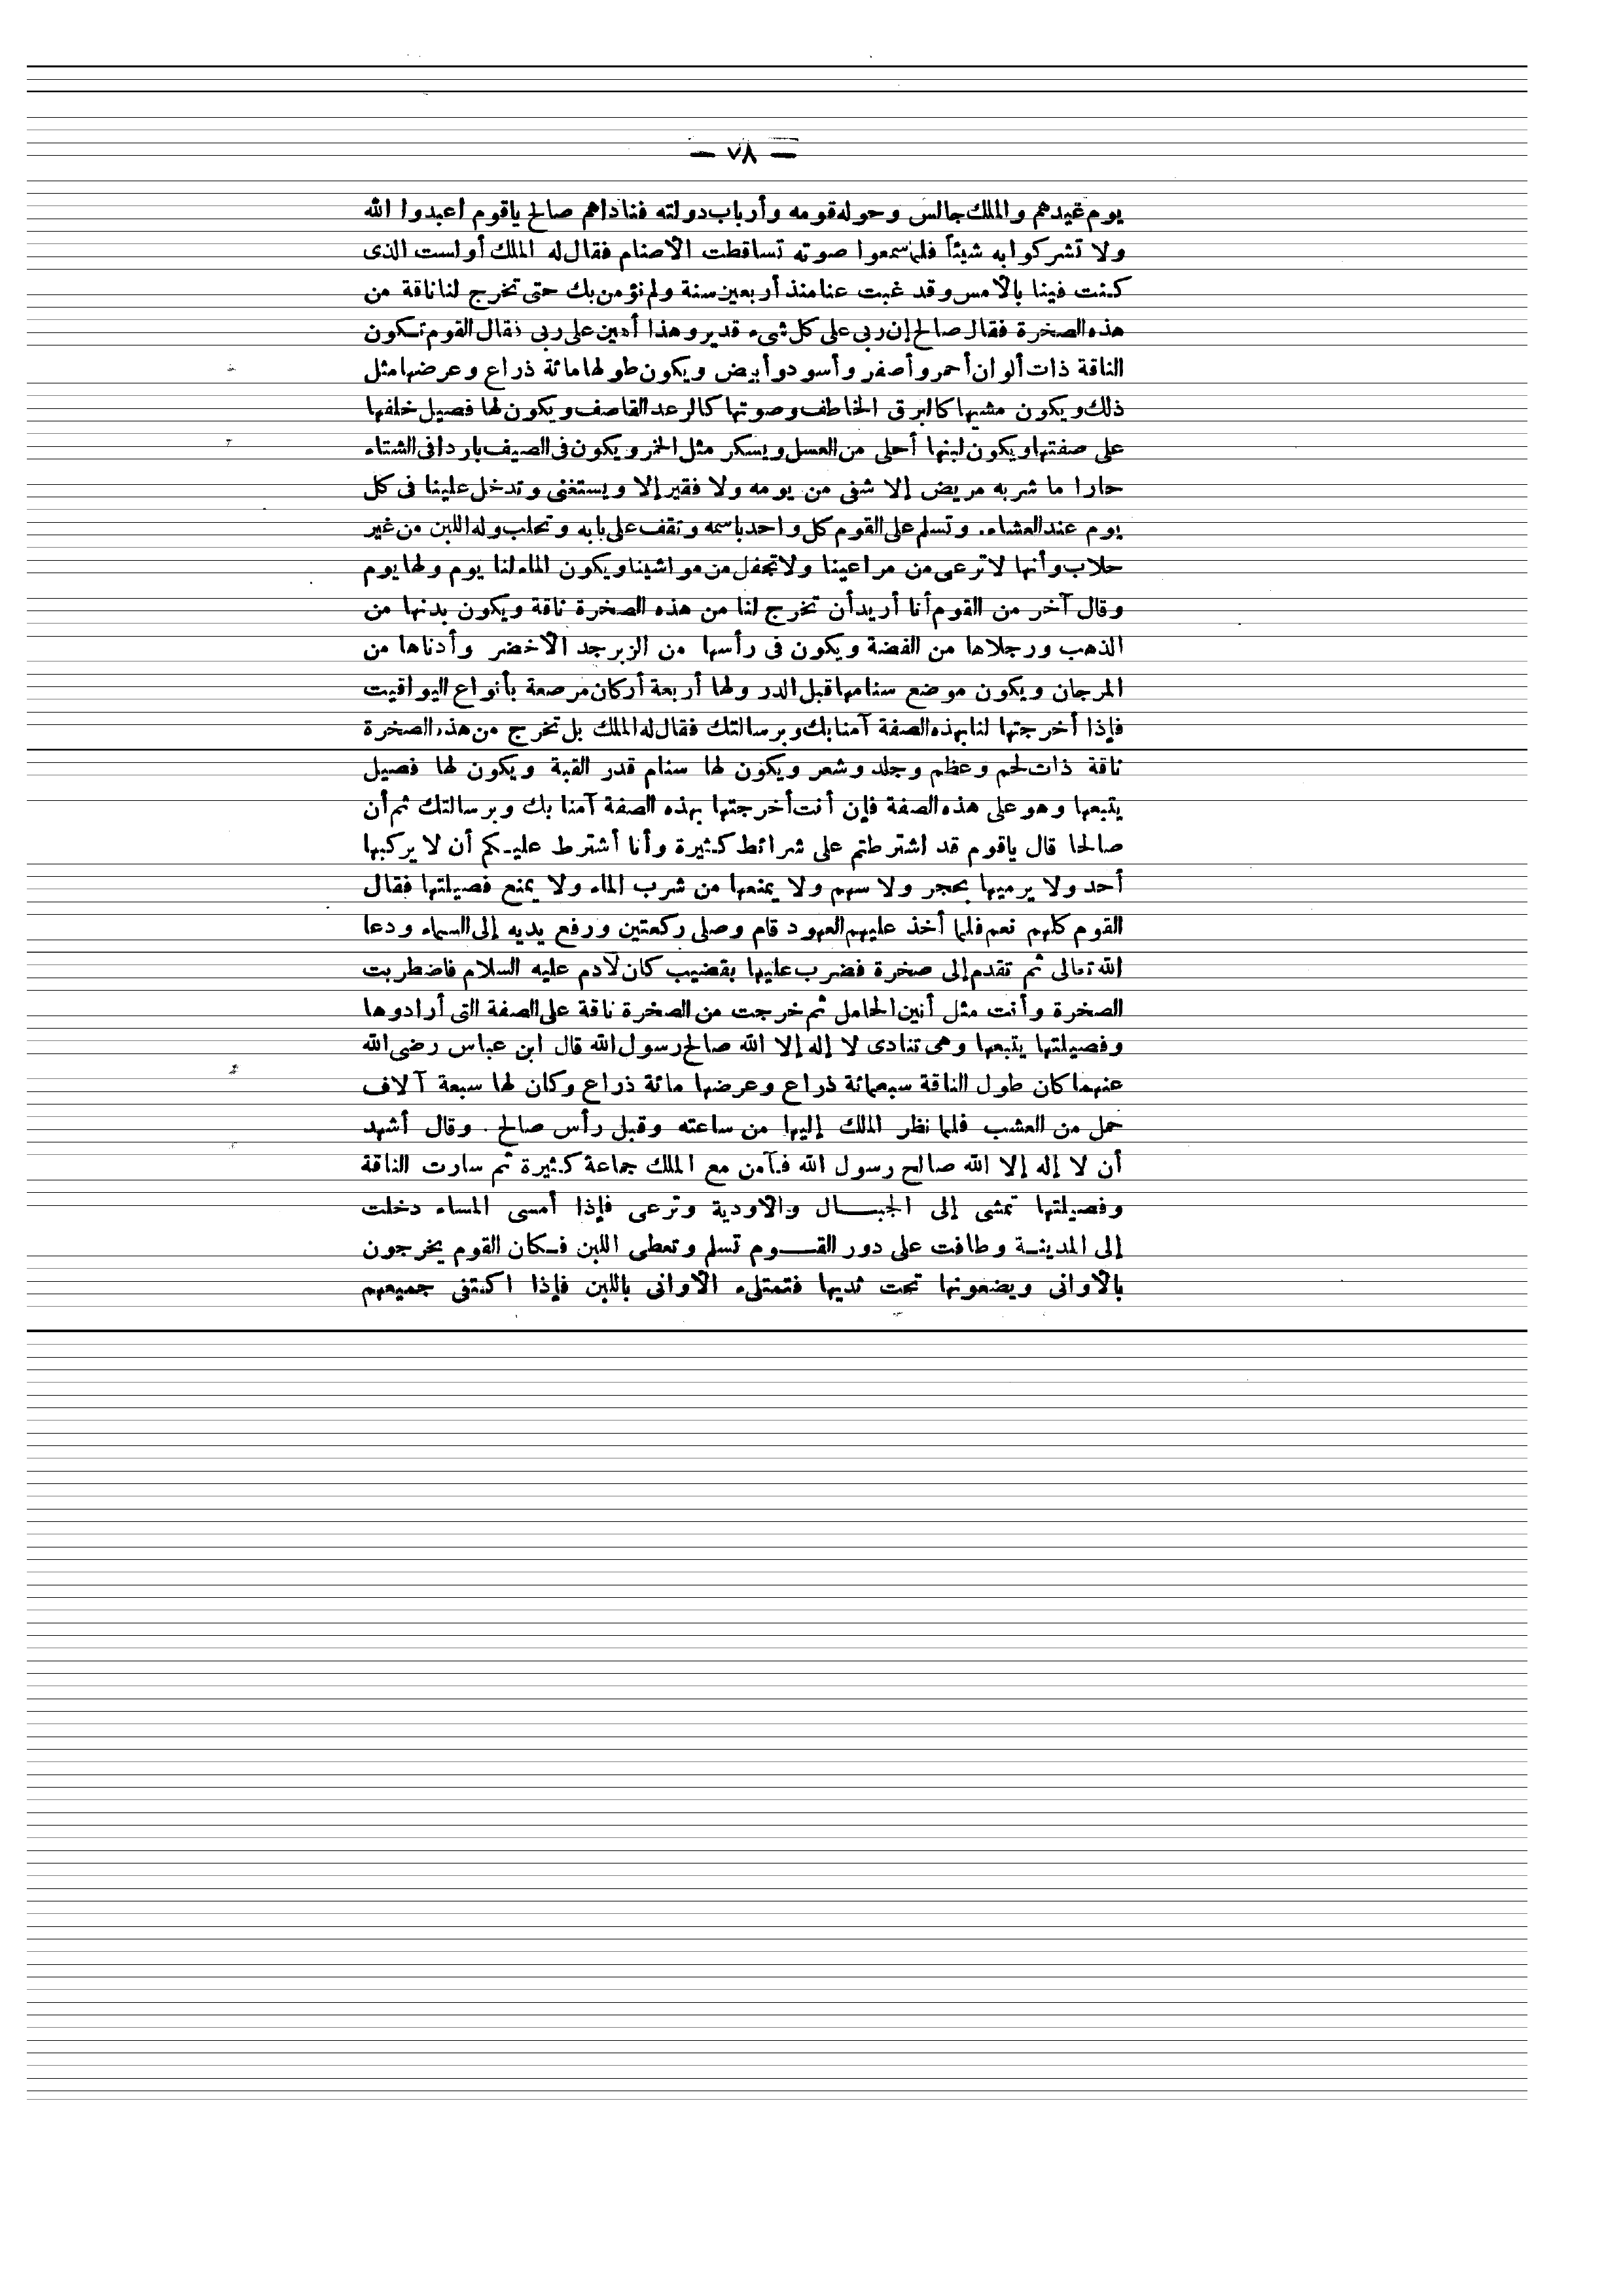 — ٧٨ —
يوم عيدهم والملك جالس وحوله قومه وأرباب دولته فناداهم صالح ياقوم اعبدوا الله
ولا تشركوا به شيئاً فلما سمعوا صوته تساقطت الأصنام فقال له الملك أولست الذى
كنت فينا بالأمس وقد غبت عنا منذ أربعين سنة ولم نؤمن بك حتى تخرج لنا ناقة من
هذه الصخرة فقال صالح إن ربى على كل شىء قدير وهذا أمين على ربى فقال القوم تكون
الناقة ذات ألوان أحمر وأصفر وأسود وأبيض ويكون طولها مائة ذراع وعرضها مثل
ذلك ويكون مشيها كالبرق الخاطف وصوتها كالرعد القاصف ويكون لها فصيل خلفها
على صفتها ويكون لبنها أحلى من العسل ويسكر مثل الخمر ويكون فى الصيف باردا فى الشتاء
حارا ما شربه مريض إلا شفى من يومه ولا فقير إلا ويستغنى وتدخل علينا فى كل
يوم عند العشاء. وتسلم على القوم كل واحد باسمه وتقف على بابه وتحلب وله اللبن من غير
حلاب وأنها لا ترعى من مراعينا ولا تجفل من مواشينا ويكون الماء لنا يوم ولها يوم
وقال آخر من القوم أنا أريد أن تخرج لنا من هذه الصخرة ناقة ويكون بدنها من
الذهب ورجلاها من الفضة ويكون فى رأسها من الزبرجد الأخضر وأدناها من
المرجان ويكون موضع سنامها قبل الدر ولها أربعة أركان مرصعة بأنواع اليواقيت
فإذا أخرجتها لنا بهذه الصفة آمنا بك وبرسالتك فقال له الملك بل تخرج من هذه الصخرة
ناقة ذات لحم وعظم وجلد وشعر ويكون لها سنام قدر القبة ويكون لها فصيل
يتبعها وهو على هذه الصفة فإن أنت أخرجتها بهذه الصفة آمنا بك وبرسالتك ثم أن
صالحا قال ياقوم قد اشترطتم على شرائط كثيرة وأنا أشترط عليكم أن لا يركبها
أحد ولا يرميها بحجر ولا سهم ولا يمنعها من شرب الماء ولا يمنع فصيلتها فقال
القوم كلهم نعم فلما أخذ عليهم العهود قام وصلى ركعتين ورفع يديه إلى السماء ودعا
الله تعالى ثم تقدم إلى صخرة فضرب عليها بقضيب كان لآدم عليه السلام فاضطربت
الصخرة وأنت مثل أنين الحامل ثم خرجت من الصخرة ناقة على الصفة التى أرادوها
وفصيلتها يتبعها وهى تنادى لا إله إلا الله صالح رسول الله قال ابن عباس رضى الله
عنهما كان طول الناقة سبعمائة ذراع وعرضها مائة ذراع وكان لها سبعة آلاف
حمل من العشب فلما نظر الملك إليها من ساعته وقبل رأس صالح . وقال أشهد
أن لا إله إلا الله صالح رسول الله فآمن مع الملك جماعة كثيرة ثم سارت الناقة
وفصيلتها تمشى إلى الجبال والأودية وترعى فإذا أمسى المساء دخلت
إلى المدينة وطافت على دور القوم تسلم وتعطى اللبن فكان القوم يخرجون
بالأوانى ويضعونها تحت ثديها فتمتلىء الأوانى باللبن فإذا اكتفى جميعهم